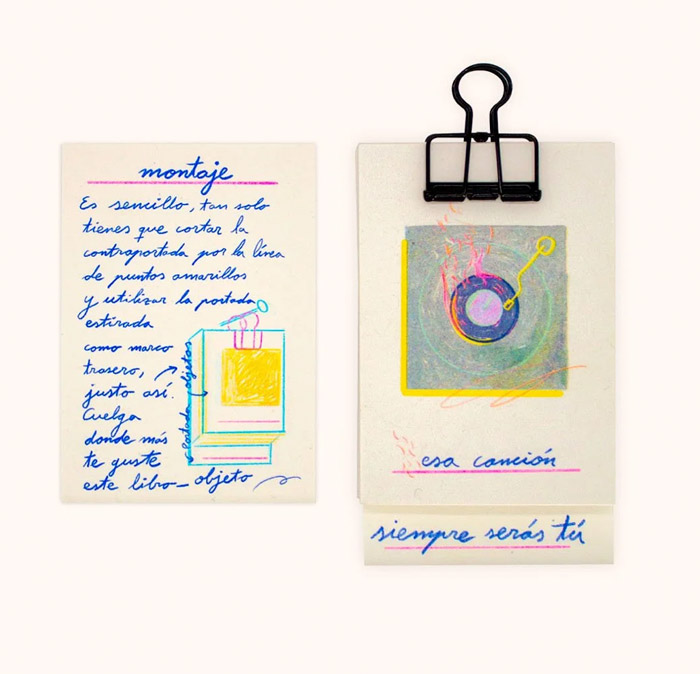 montaje
Es sencillo, tan solo
tienes que cortar la
contraportada por la línea
de puntos amarillos
y utilizar la portada
estirada
como marco
trasero,
justo así.
Cuelga
donde más
te guste
este libro-objeto
portada objetos
esa canción
siempre serás tú